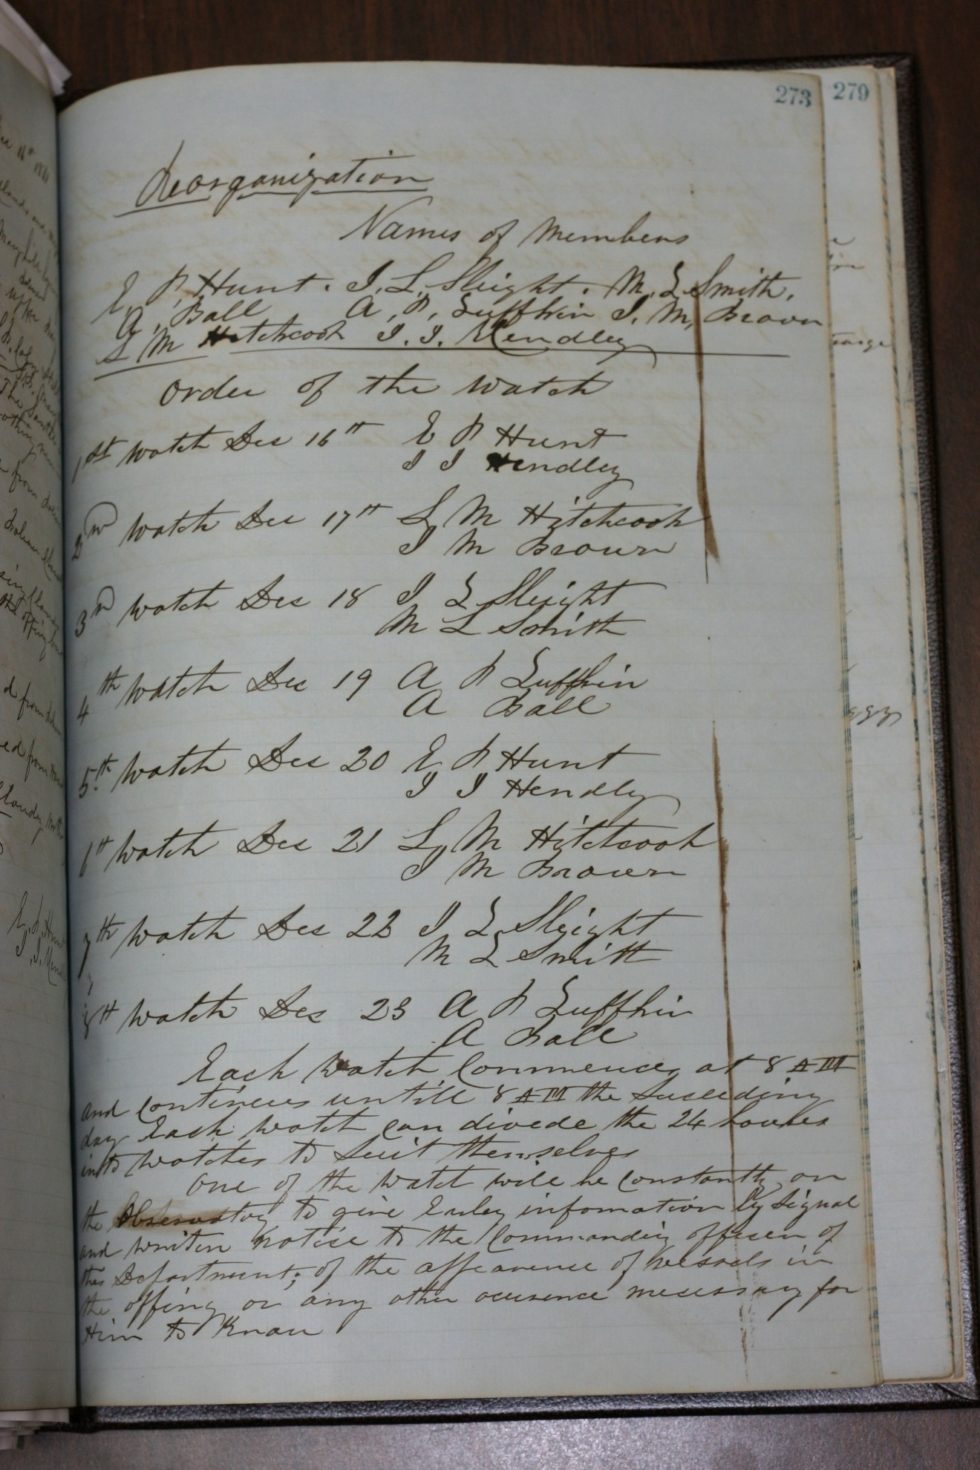 273 279
Reorganization
Names of Members
E, P, Hunt. J, L, Sleight. M, L Smith.
A, Ball A, P, Lufkin J, M, Brown
L M Hitchcook J. J. Hendley
Order of the Watch
1st watch Dec 16th E P Hunt
J J Hendley
2nd watch Dec 17th L M Hitchcook
J M Brown
3rd watch Dec 18 J L Sleight
M L Smith
4th watch Dec 19 A P Luffkin
A Ball
5th watch Dec 20 E P Hunt
J J Hendley
6th watch Dec 21 L M Hitchcook
J M Brown
7th watch Dec 22 J L Sleight
M L Smith
8th watch Dec 23 A P Luffkin
A Ball
Each Watch Commences at 8 AM
and continues untill 8 AM the Suceeding
day Each watch can divede the 24 houers
into watches to Suit themselves
One of the watch will be constantly on
the Observatory to give Earley infomation by Signal
and writen notise to the Commanding officen of
this Department; of the appearence of vessels in
the offing or any other ocurence nesessary for
Him to Know